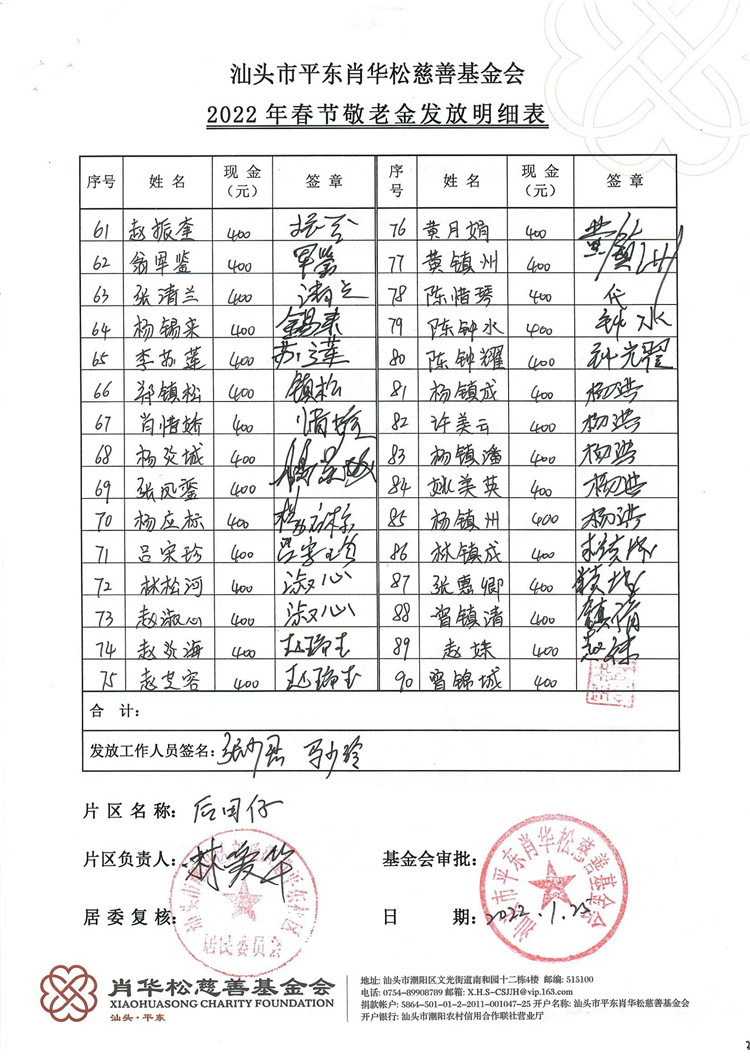 汕头市平东肖华松慈善基金会
2022年春节敬老金发放明细表
序号 姓名 现金（元） 签章 序号 姓名 现金（元） 签章
61 赵振奎 400 76 黄月娟 400
62 翁军鉴 400 军鉴 77 黄镇州 400
63 张清兰 400 清兰 78 陈惜琴 400 代
64 杨锡来 400 锡来 79 陈钟水 400 钟水
65 李苏莲 400 苏莲 80 陈钟耀 400
66 郑镇松 400 镇松 81 杨镇成 400 杨洪
67 肖惜娇 400 惜娇 82 许美云 400 杨洪
68 杨炎城 400 83 杨镇潘 400 杨洪
69 张凤銮 400 84 姚美英 400 杨洪
70 杨应标 400 杨应标 85 杨镇州 400 杨洪
71 吕宋珍 400 86 林镇成 400
72 林松河 400 淑心 87 张惠卿 400
73 赵淑心 400 淑心 88 曾镇清 400 镇清
74 赵炎海 400 89 赵妹 400 赵妹
75 赵芝容 400 90 曾锦城 400
合计：
发放工作人员签名：
片区名称：后田仔
片区负责人：林爱华
基金会审批：
汕头市平东肖华松慈善基金会
居委复核：
居民委员会
日期：2022.1.25
肖华松慈善基金会
XIAOHUASONG CHARITY FOUNDATION
汕头·平东
地址：汕头市潮阳区文光街道南和园十二栋4楼 邮编：515100
电话：0754-89908789 邮箱：X.H.S-CSJJH@vip.163.com
捐款帐户：5864-501-01-2-2011-001047-25 开户名称：汕头市平东肖华松慈善基金会
开户银行：汕头市潮阳农村信用合作联社营业厅